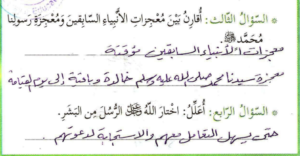 * السؤال الثالث: أقارن بين معجزات الأنبياء السابقين ومعجزة رسولنا
محمد ﷺ.
معجزات الأنبياء السابقين مؤقتة
معجزة سيدنا محمد صلى الله عليه وسلم خالدة وباقية إلى يوم القيامة
* السؤال الرابع: أعلل: اختار الله ﷻ الرسل من البشر.
حتى يسهل التعامل معهم والاستجابة لدعوتهم.